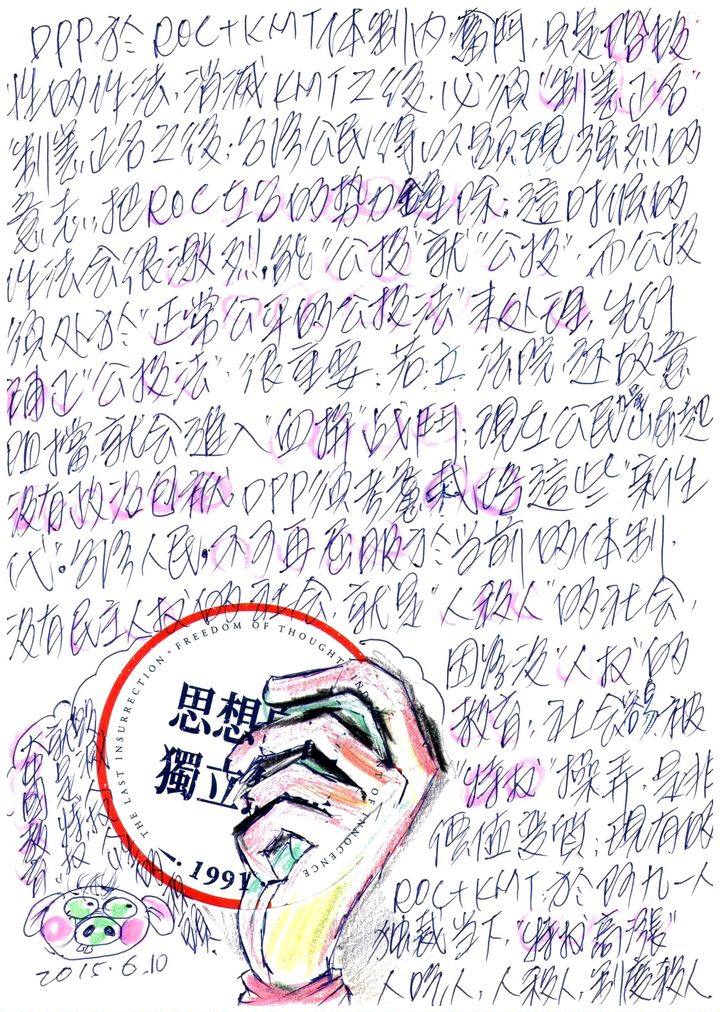 DPP於ROC+KMT体制內奮鬥,只是階段
性的作法,消滅KMT之後,必須"制憲正名"
"制憲正名"之後,台湾公民得以顯現強烈的
意志,把ROC在台的势力 除,這时候的
作法会很激烈,能"公投"就"公投",而公投
須处於"正常公平的公投法"來处理,先行
補正"公投法"很重要,若立法院还故意
阻擋,就会進入"血拼"战鬥,現在公民 起
沒有政治包袱,DPP須考慮 這些"新生
代",台湾人民,不可再屈服於当前的体制,
沒有民主人权的社会,就是"人殺人"的社会,
因为沒"人权"的
教育,社会容易被
"特权"操弄,是非
價值变質,現有的
ROC+KMT,於阿九一人
独裁当下,"特权高漲"
人吃人,人殺人,制度殺人
THE LAST INSURRECTION · FREEDOM OF THOUGHT · IND T OF INNOCENCE
思想
獨立
· 1991 ·
2015.6.10